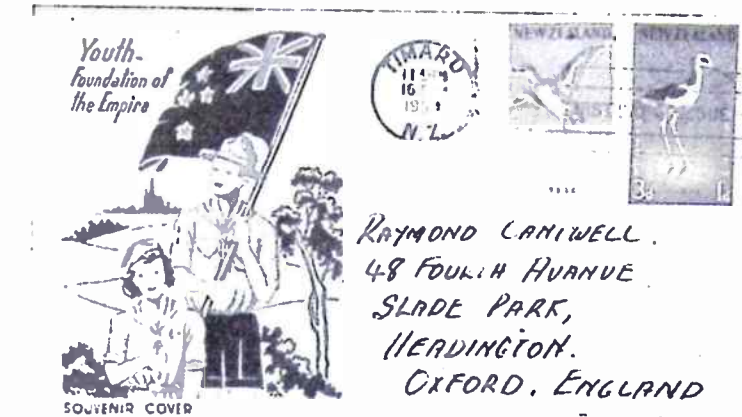 Youth-
Foundation of
the Empire
TIMARU
16
N.Z.
NEW ZEALAND
NEW ZEALAND
3d 1d
RAYMOND CANTWELL.
48 FOURTH AVANUE
SLADE PARK,
HEADINGTON.
OXFORD. ENGLAND
SOUVENIR COVER